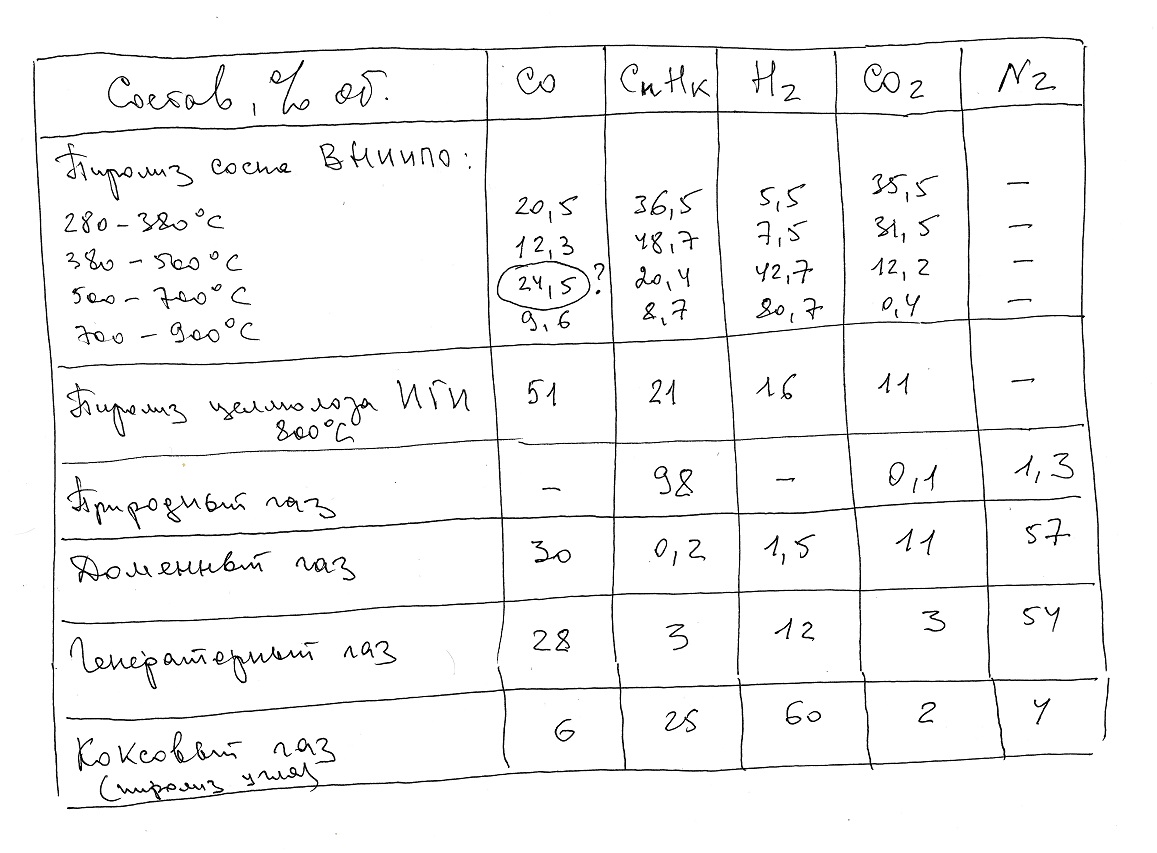 Состав, % об. CO CnHк H2 CO2 N2
Пиролиз сосна ВНИИПО:
280 – 380°C 20,5 36,5 5,5 35,5 –
380 – 500°C 12,3 48,7 7,5 31,5 –
500 – 700°C 24,5? 20,4 42,7 12,2 –
700 – 900°C 9,6 8,7 80,7 0,4 –
Пиролиз целлюлоза ИГИ 51 21 16 11 –
800°C
Природный газ – 98 – 0,1 1,3
Доменный газ 30 0,2 1,5 11 57
Генераторный газ 28 3 12 3 54
Коксовый газ 6 25 60 2 4
(пиролиз угля)